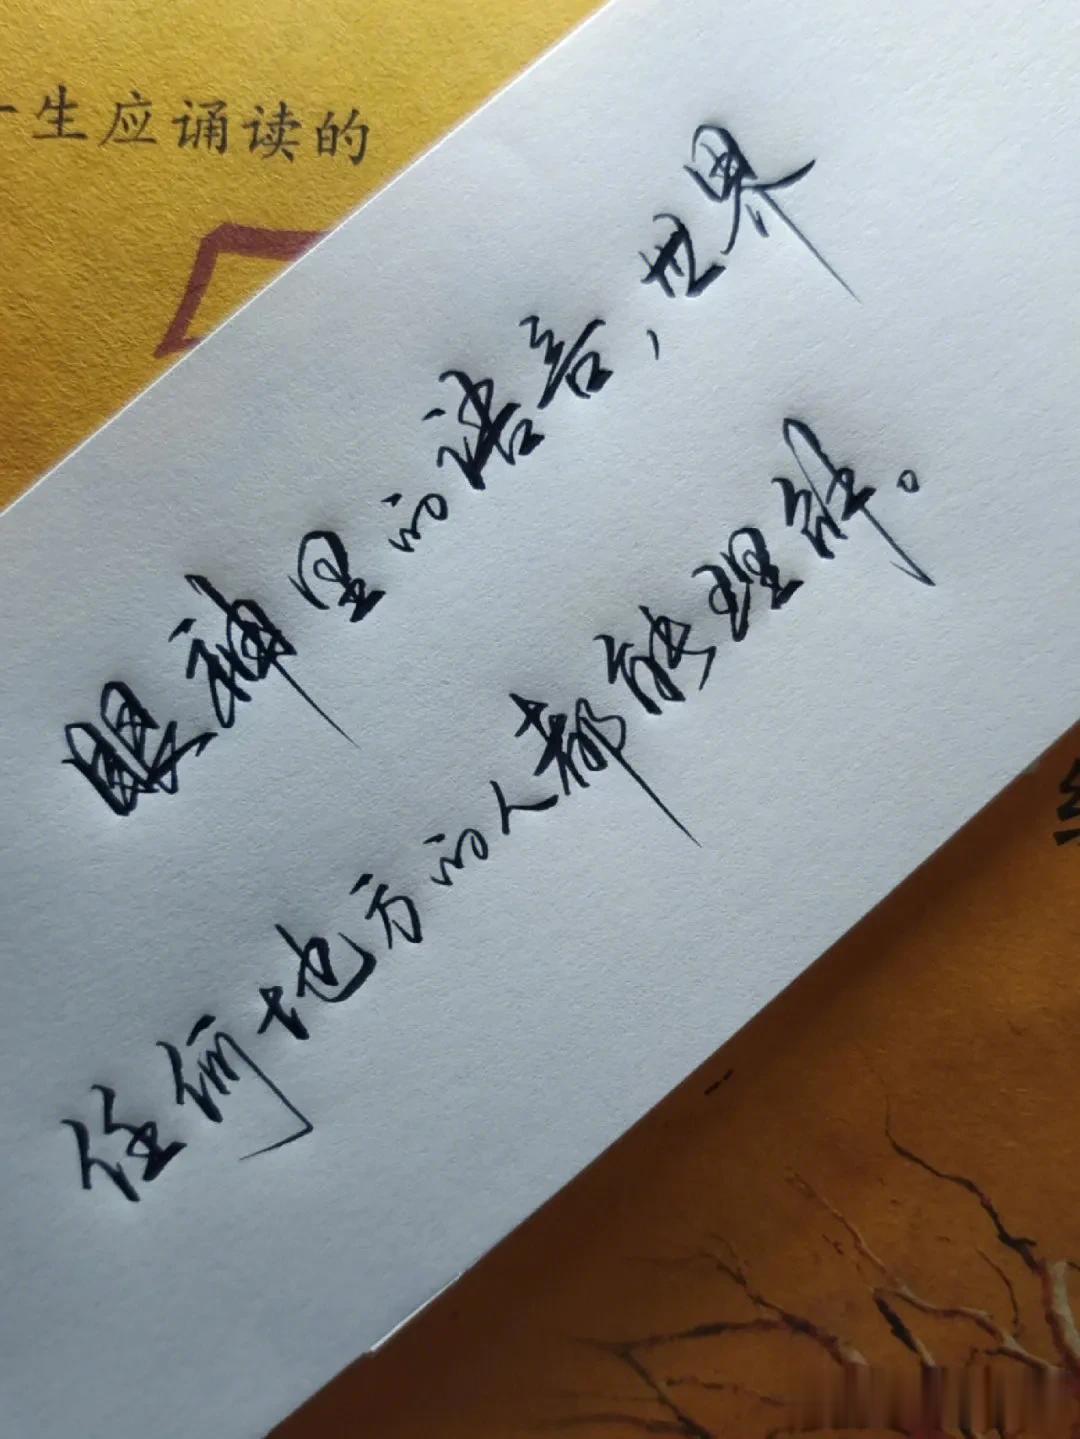 一生应诵读的
眼神里的语言，世界
任何地方的人都能理解。